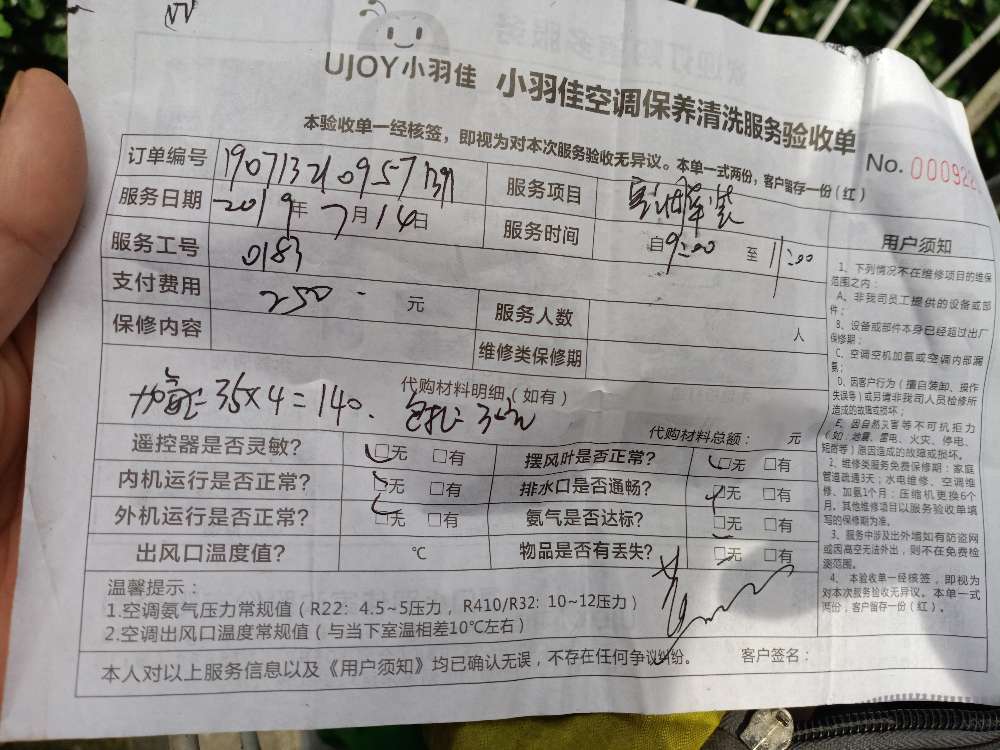 UJOY小羽佳 小羽佳空调保养清洗服务验收单
本验收单一经核签，即视为对本次服务验收无异议。本单一式两份，客户留存一份（红）
No. 000922
订单编号 服务项目
服务日期 2019年7月14日 服务时间 自9:00 至11:00
服务工号 0183
支付费用 250 - 元 服务人数 人
保修内容 维修类保修期
代购材料明细（如有）
35×4=140.
代购材料总额： 元
遥控器是否灵敏？ □无 □有 摆风叶是否正常？ □无 □有
内机运行是否正常？ □无 □有 排水口是否通畅？ □无 □有
外机运行是否正常？ □无 □有 氨气是否达标？ □无 □有
出风口温度值？ ℃ 物品是否有丢失？ □无 □有
温馨提示：
1.空调氨气压力常规值（R22: 4.5~5压力，R410/R32: 10~12压力）
2.空调出风口温度常规值（与当下室温相差10℃左右）
本人对以上服务信息以及《用户须知》均已确认无误，不存在任何争议纠纷。 客户签名：
用户须知
1、下列情况不在维修项目的维保
范围之内：
A、非我司员工提供的设备或部
件；
B、设备或部件本身已经超过出厂
保修期；
C、空调空机加氨或空调内部漏
氨；
D、因客户行为（擅自装卸、操作
失误等）或另请非我司人员检修所
造成的故障或损坏；
E、因自然灾害等不可抗拒力
（如：地震、雷电、火灾、停电、
短路等）原因造成的故障或损坏。
2、维修类服务免费保修期：家庭
管道疏通3天；水电维修、空调维
修、加氨1个月；压缩机更换6个
月。其他维修项目以服务验收单填
写的保修期为准。
3、服务中涉及出外墙如有防盗网
或因高空无法外出，则不在免费检
测范围。
4、本验收单一经核签，即视为
对本次服务验收无异议。本单一式
两份，客户留存一份（红）。